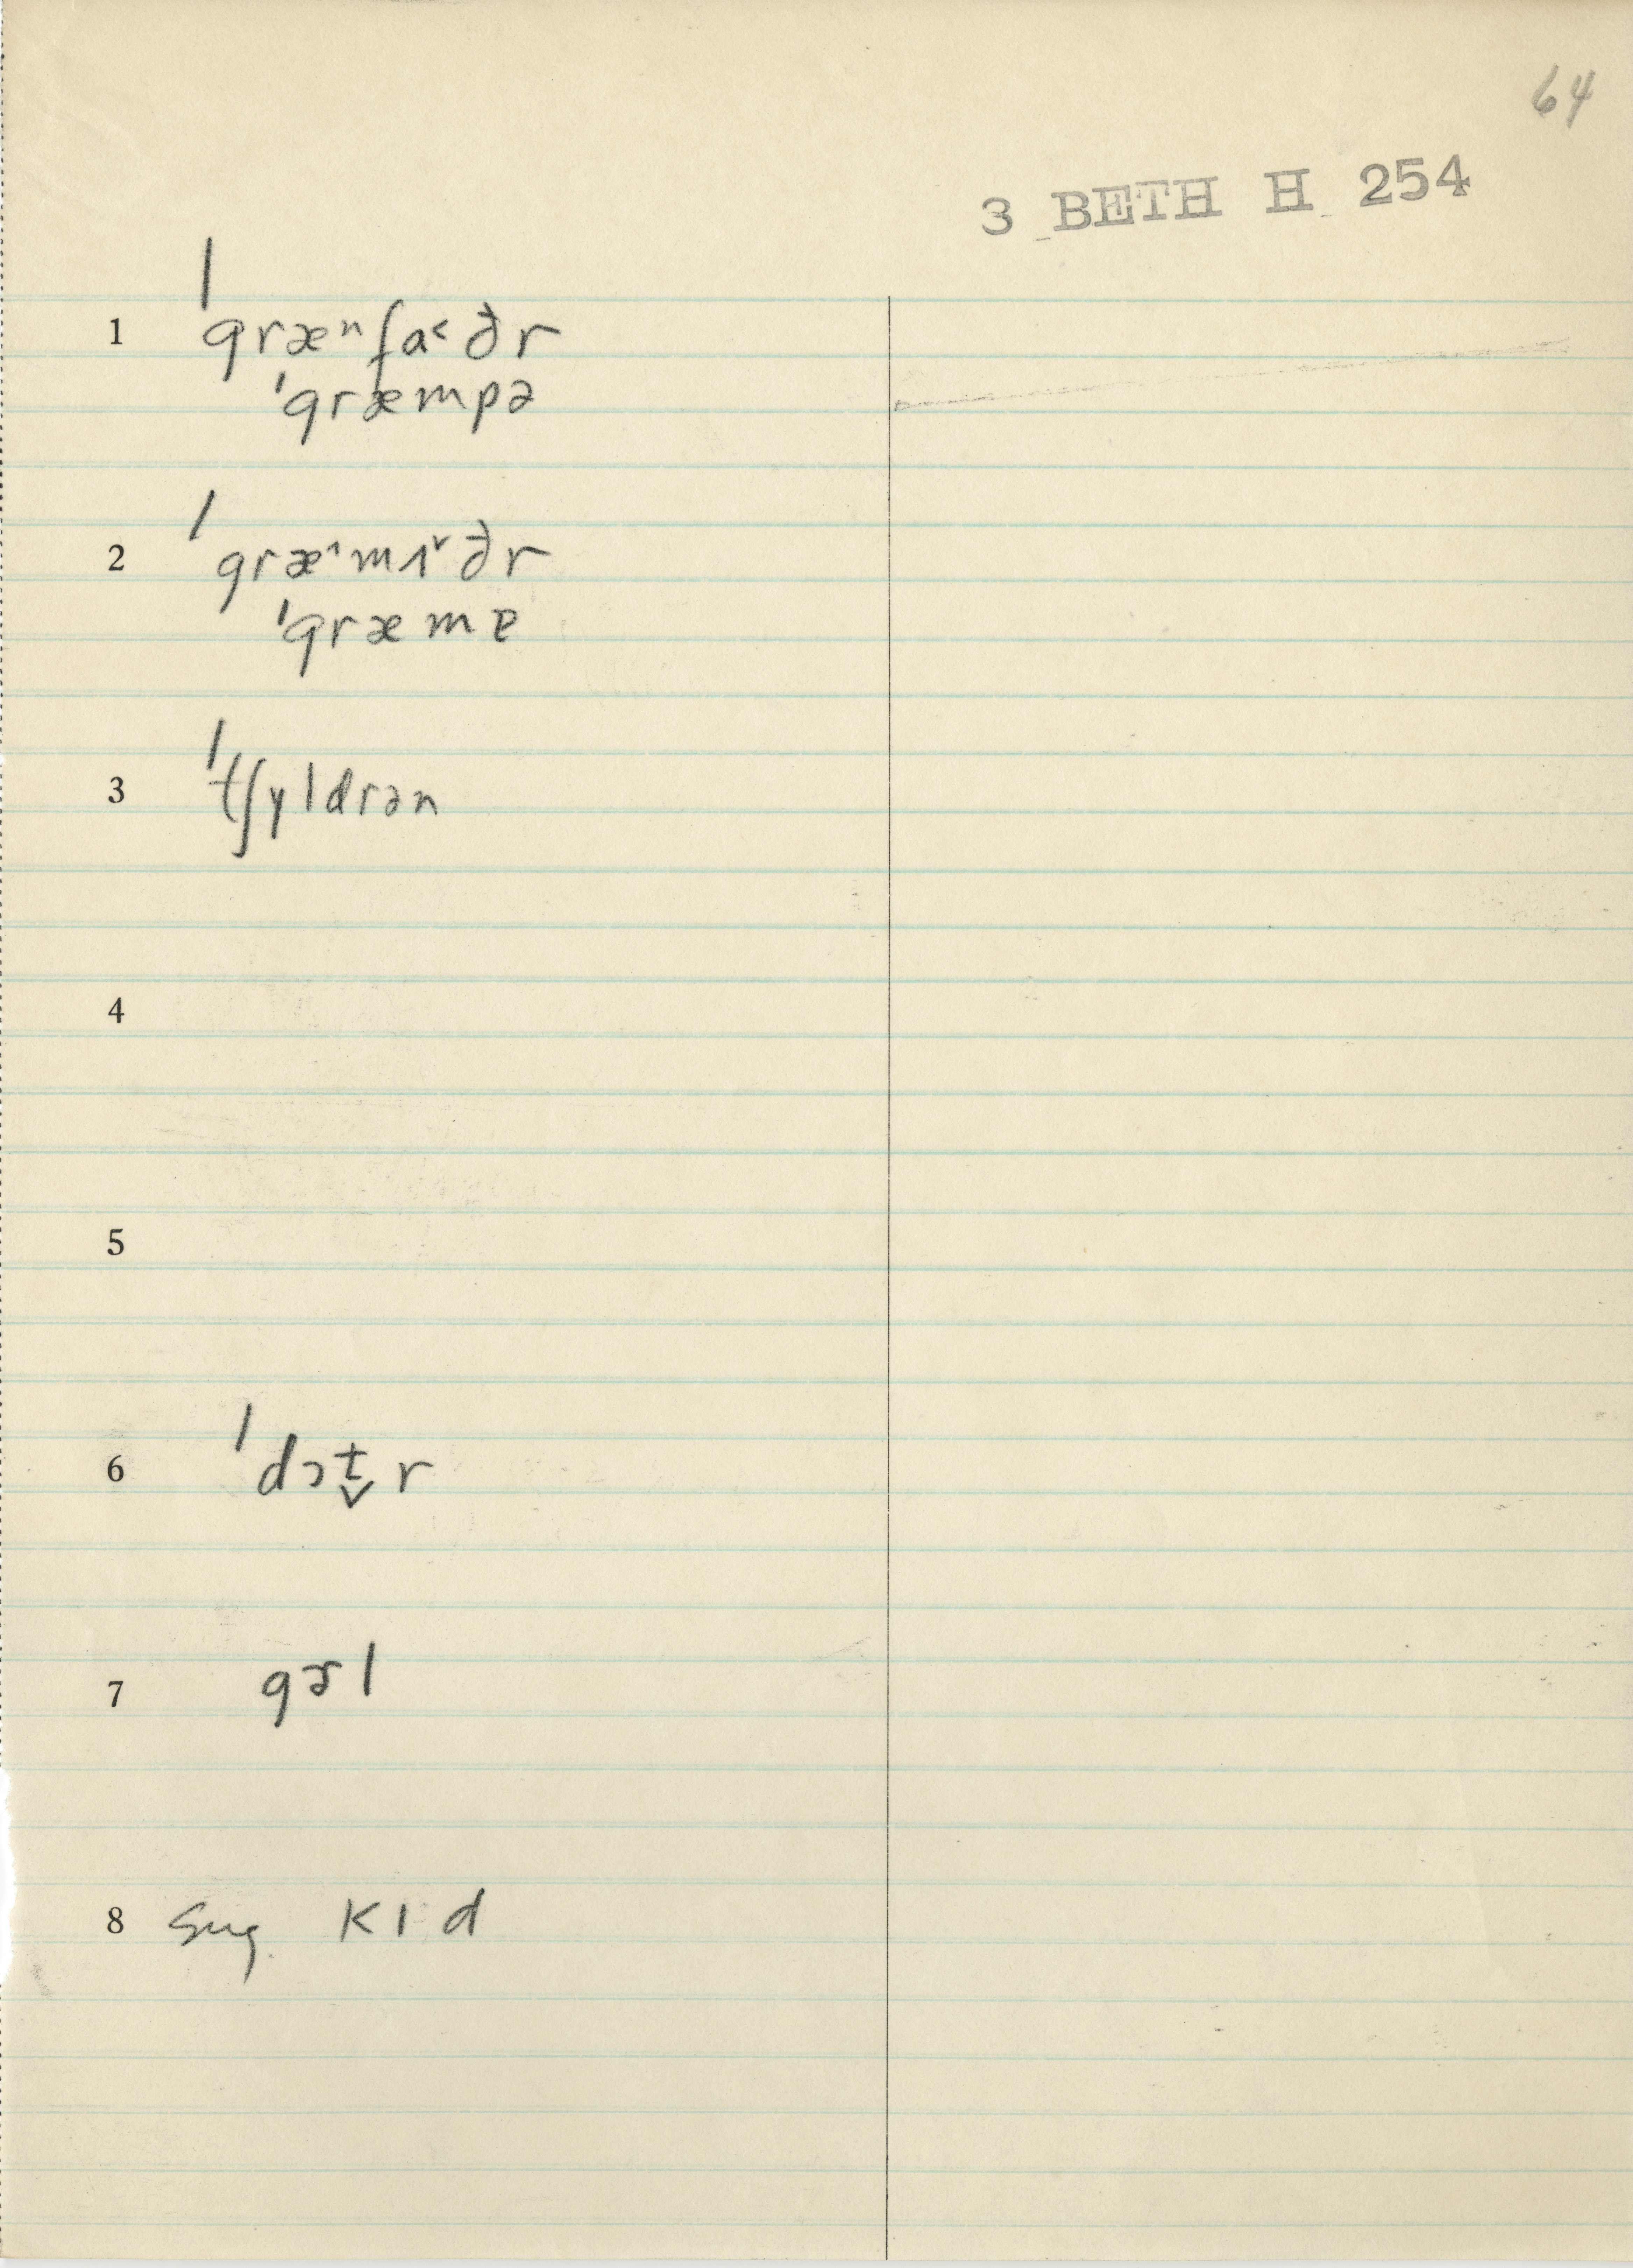 64
3 BETH H 254
1 ˈgræⁿfa˂ðr
ˈgræmpə
2 ˈgræ^mʌ˅ðr
ˈgræmɐ
3 ˈtʃyldrən
4
5
6 ˈdɔt̬r
7 gɝl
8 sug. kɪd